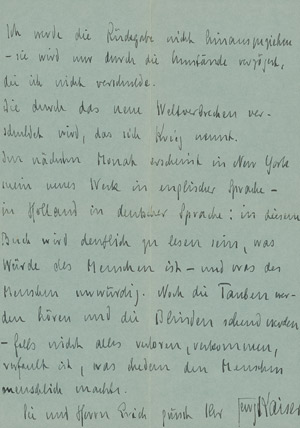 Ich werde die Rückgabe nicht hinausziehen
– sie wird nur durch die Umstände verzögert,
die ich nicht verschulde.
Die durch das neue Weltverbrechen ver-
schuldet wird, das sich Krieg nennt.
Im nächsten Monat erscheint in New York
mein neues Werk in englischer Sprache –
in Holland in deutscher Sprache: in diesem
Buch wird deutlich zu lesen sein, was
Würde des Menschen ist – und was des
Menschen unwürdig. Noch die Tauben wer-
den hören und die Blinden sehend werden
– falls nicht alles verloren, verkommen,
verfault ist, was ehedem den Menschen
menschlich machte.
Sie und Herrn Erich grüsst Ihr Georg Kaiser